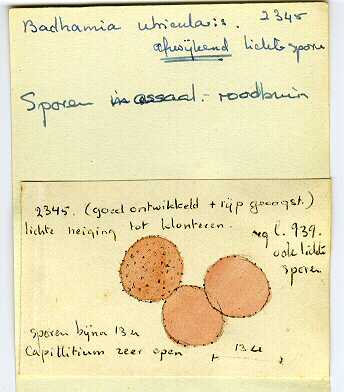 Badhamia utricularis. 2345
afwijkend lichte spore
Sporen in massa: - roodbruin
2345. (goed ontwikkeld + rijp geoogst.)
lichte neiging tot klonteren.
C. 939.
ook lichte
sporen
sporen bijna 13 u
Capillitium zeer open
13 u